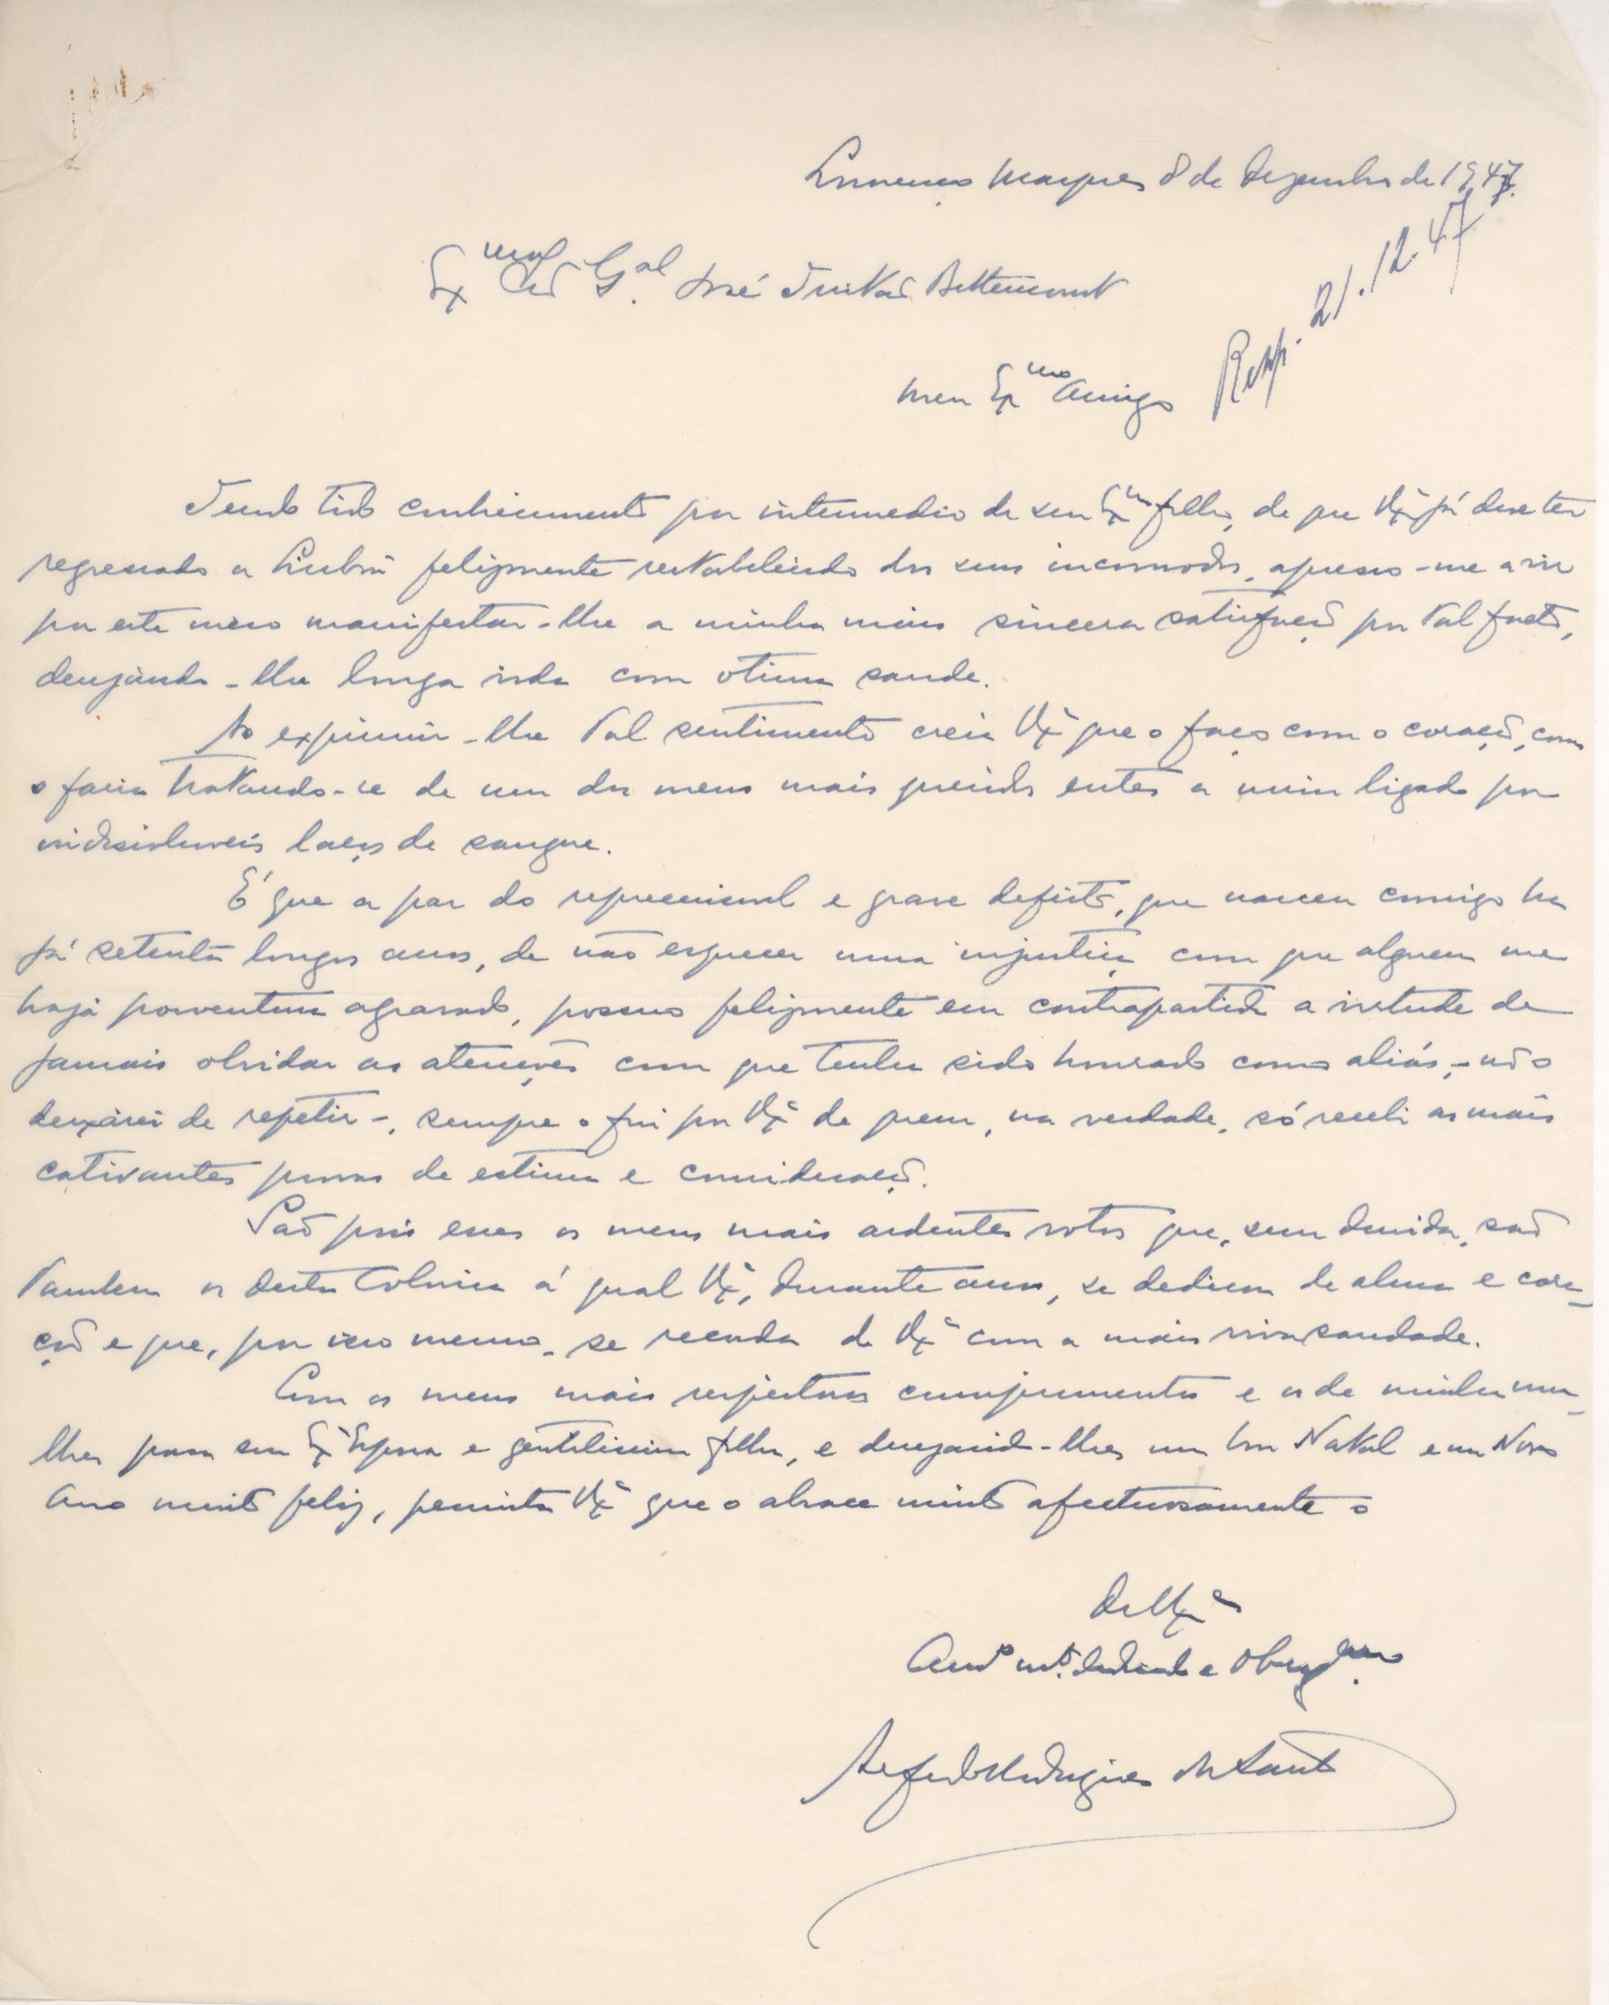 Lourenço Marques 8 de Dezembro de 1947.
Resp. 21.12.47
Exmo Snr Gal. José Tristão Bettencourt
Meu Exmo Amigo
Tendo tido conhecimento por intermedio de seu Exmo filho, de que VExª já deve ter
regressado a Lisbôa felizmente restabelecido dos seus incomodos, apresso-me a vir
por este meio manifestar-lhe a minha mais sincera satisfação por tal facto,
desejando-lhe longa vida com otima saude.
Ao exprimir-lhe tal sentimento creia VExª que o faço com o coração, como
o faria tratando-se de um dos meus mais queridos entes a mim ligado por
indissoluveis laços de sangue.
É que a par do repreensivel e grave defeito, que nasceu comigo ha
já setenta longos anos, de não esquecer uma injustiça com que alguem me
haja porventura agravado, possuo felizmente em contrapartida a virtude de
jamais olvidar as atenções com que tenho sido honrado como aliás, - não
deixarei de repetir -, sempre o fui por VExª de quem, na verdade, só recebi as mais
cativantes provas de estima e consideração.
São pois esses os meus mais ardentes votos que, sem duvida, são
tambem os desta Colonia á qual VExª, durante anos, se dedicou de alma e cora-
ção e que, por isso mesmo, se recorda de VExª com a mais viva saudade.
Com os meus mais respeitosos cumprimentos e os de minha mu-
lher para sua Exª Esposa e gentilissima filha, e desejando-lhes um bom Natal e um Novo
Ano muito feliz, permita VExª que o abrace muito afectuosamente o
De VExª
Amº mtº dedicado e Obrigdmo.
Rodrigues dos Santos